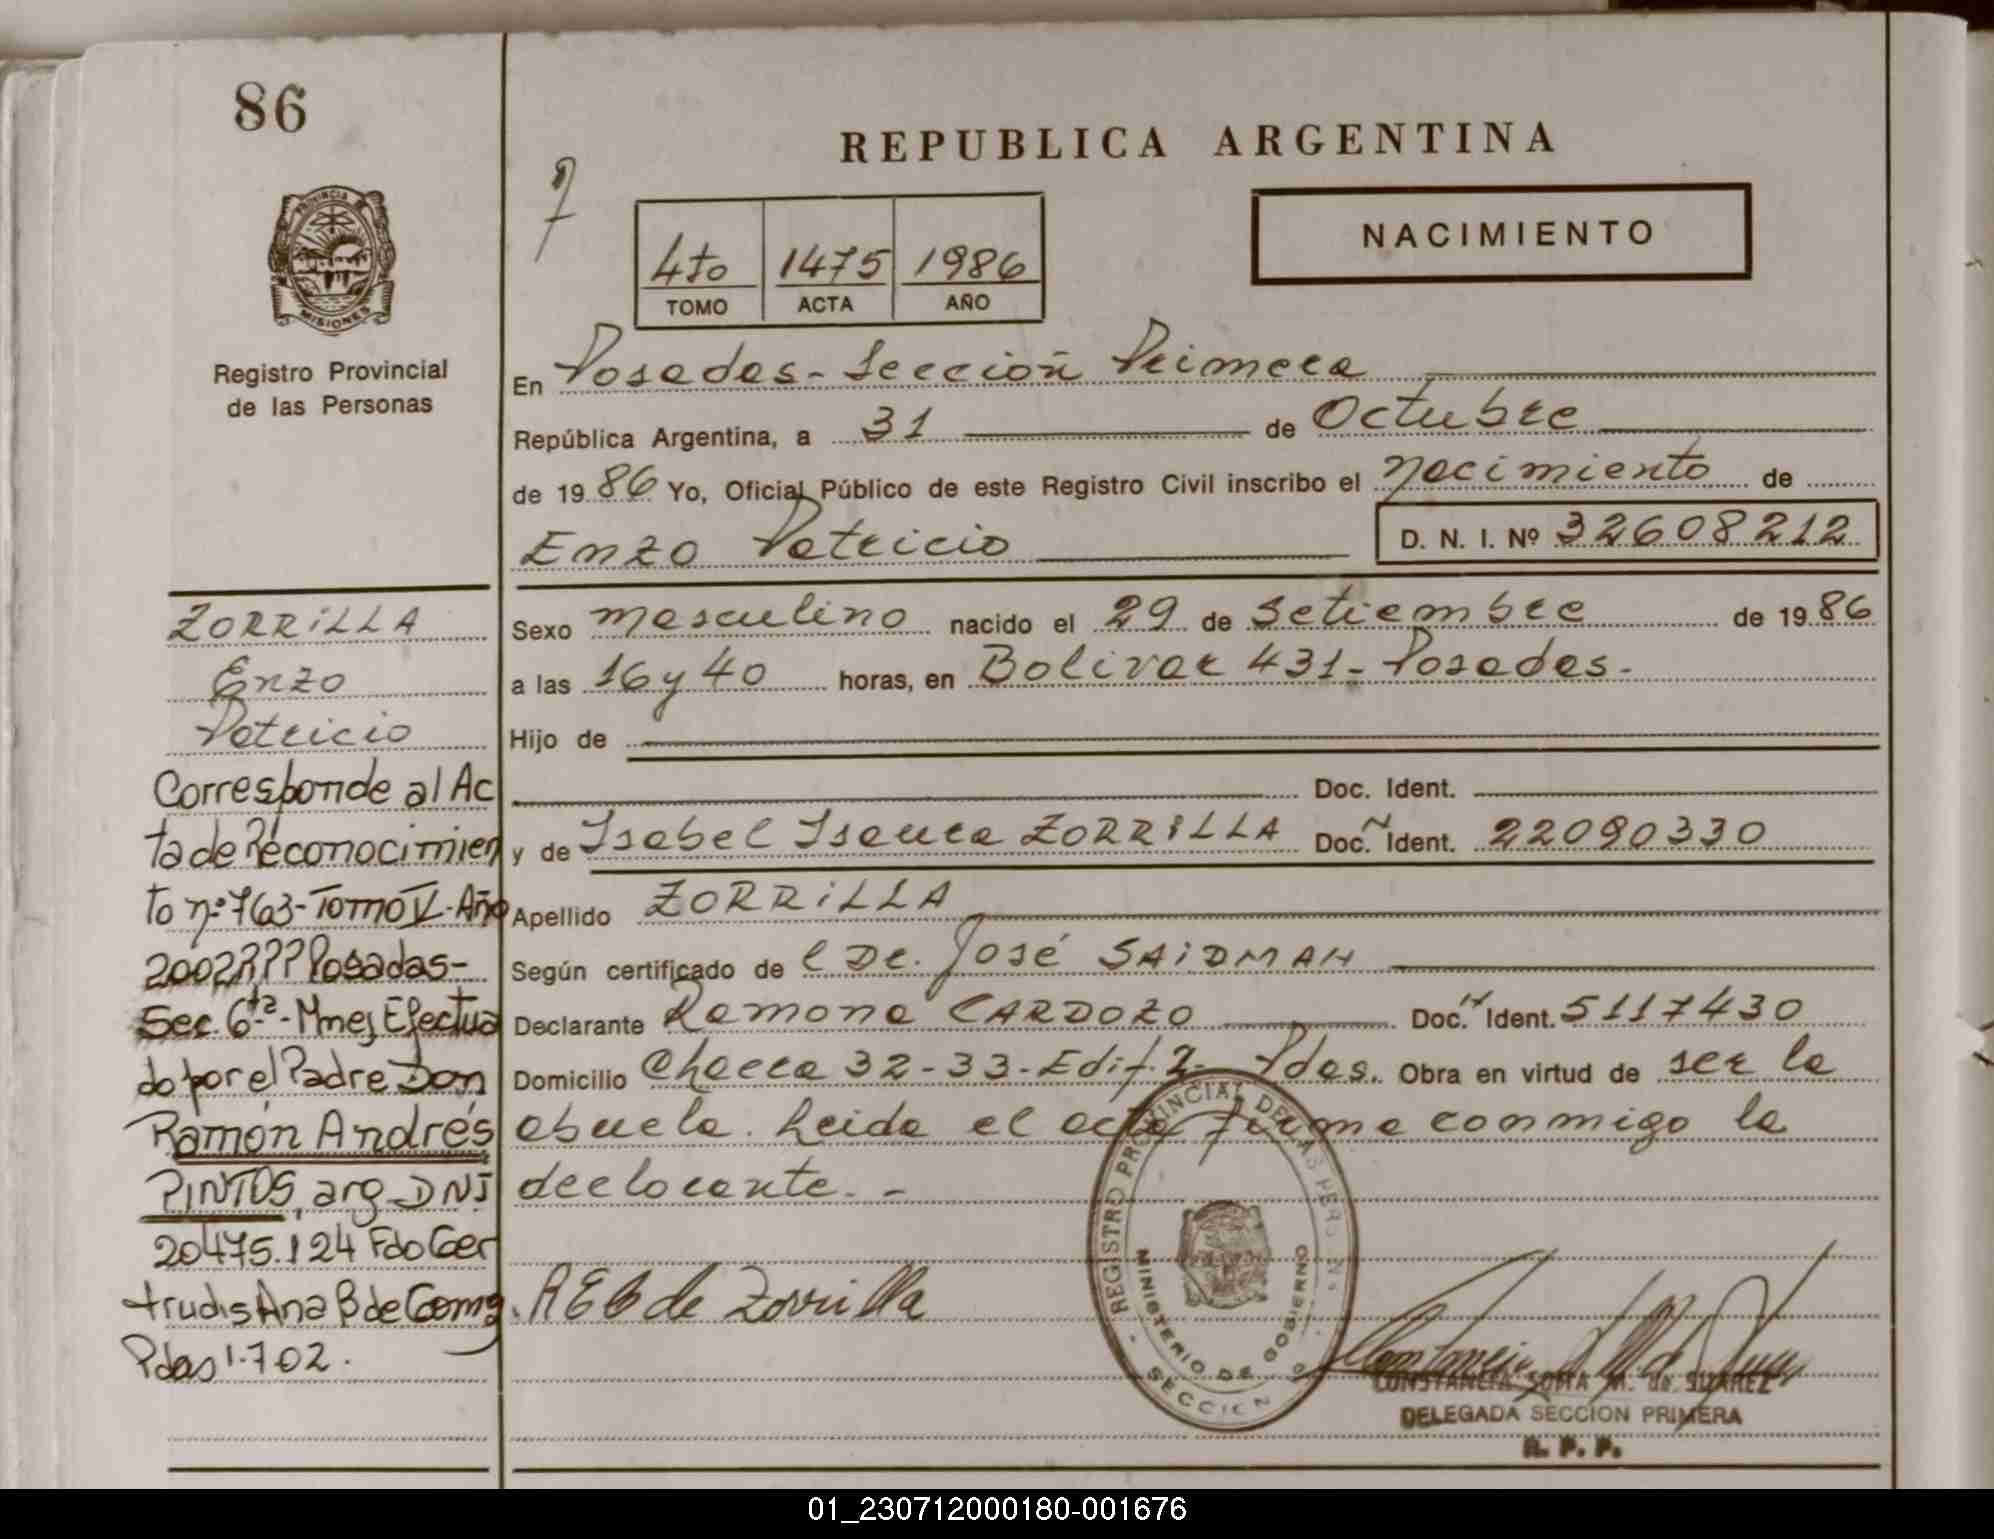 86
REPUBLICA ARGENTINA
NACIMIENTO
4to 1475 1986
TOMO ACTA AÑO
PROVINCIA DE
MISIONES
Registro Provincial
de las Personas
En Posadas - Sección Primera
República Argentina, a 31 de Octubre
de 1986 Yo, Oficial Público de este Registro Civil inscribo el nacimiento de
Enzo Patricio D. N. I. Nº 32608212
Sexo masculino nacido el 29 de Setiembre de 1986
a las 16 y 40 horas, en Bolivar 431 - Posadas.
Hijo de
Doc. Ident.
y de Isabel Isaura ZORRiLLA Doc. Ident. 22090330
Apellido ZORRiLLA
Según certificado de l Dr. José SAiDMAN
Declarante Ramona CARDOZO Doc. Ident. 5117430
Domicilio Chacra 32-33-Edif. 2- Pdas. Obra en virtud de ser la
abuela. Leida el acta firma conmigo la
declarante. -
ZORRiLLA
Enzo
Patricio
Corresponde al Ac
ta de Reconocimien
to nº 763-Tomo V-Año
2002 Posadas-
Sec. 6ta - Mnes Efectua
do por el Padre Don
Ramón Andrés
PINTOS, arg. DNI
20475.124 Fdo Ger
trudis Ana B de Gomez
Pdas 1.7 02.
de Zorrilla
REGISTRO PROVINCIAL DE LAS PERSONAS
MINISTERIO DE GOBIERNO
SECCION
CONSTANCIA SOFIA M. de SUAREZ
DELEGADA SECCION PRIMERA
R. P. P.
01_230712000180-001676